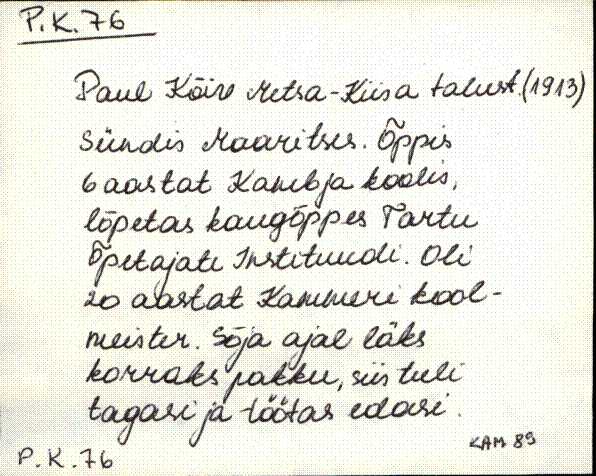 P.K.76
Paul Kõiv Metsa-Kiisa talust.(1913)
Sündis Maaritses. Õppis
6 aastat Kambja koolis,
lõpetas kaugõppes Tartu
Õpetajate Instituudi. Oli
20 aastat Kammeri kool-
meister. Sõja ajal läks
korraks pakku, siis tuli
tagasi ja töötas edasi.
KAM 89
P.K.76